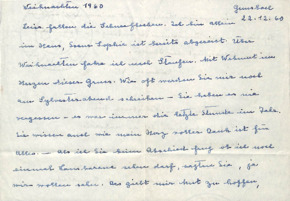 Weihnachten 1960 Gunsbach
22-12.60
Leise fallen die Schneeflocken. Ich bin allein
im Haus, Soeur Sophie ist heute abgereist. Über
Weihnachten fahre ich nach Mit Wehmut im
Herzen dieser Gruss. Wie oft werden Sie mir noch
am Sylvesterabend schreiben – Sie haben es nie
vergessen – es war immer die letzte Stunde im Jahr.
Sie wissen auch wie mein Herz voller Dank ist für
Alles. – Als ich Sie beim Abschied frug ob ich noch
einmal Lambarene sehen darf, sagten Sie, "ja
wir wollen sehen. Das giebt mir Mut zu hoffen,